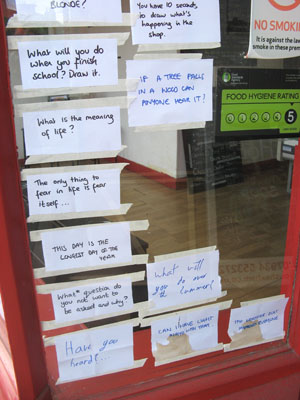 BLONDE?
You have 10 seconds
to draw what's
happening in the
shop.
What will you do
when you finish
school? Draw it.
IF A TREE FALLS
IN A WOOD CAN
ANYONE HEAR IT?
What is the meaning
of life?
The only thing to
fear in life is fear
itself...
THIS DAY IS THE
LONGEST DAY OF THE
YEAR
What question do
you not want to
be asked and why?
What will
you do over
the Summer?
Have you
heard...
CAN I HAVE WHAT
NO SMOKING
It is against the law
smoke in these prem
FOOD HYGIENE RATING
5